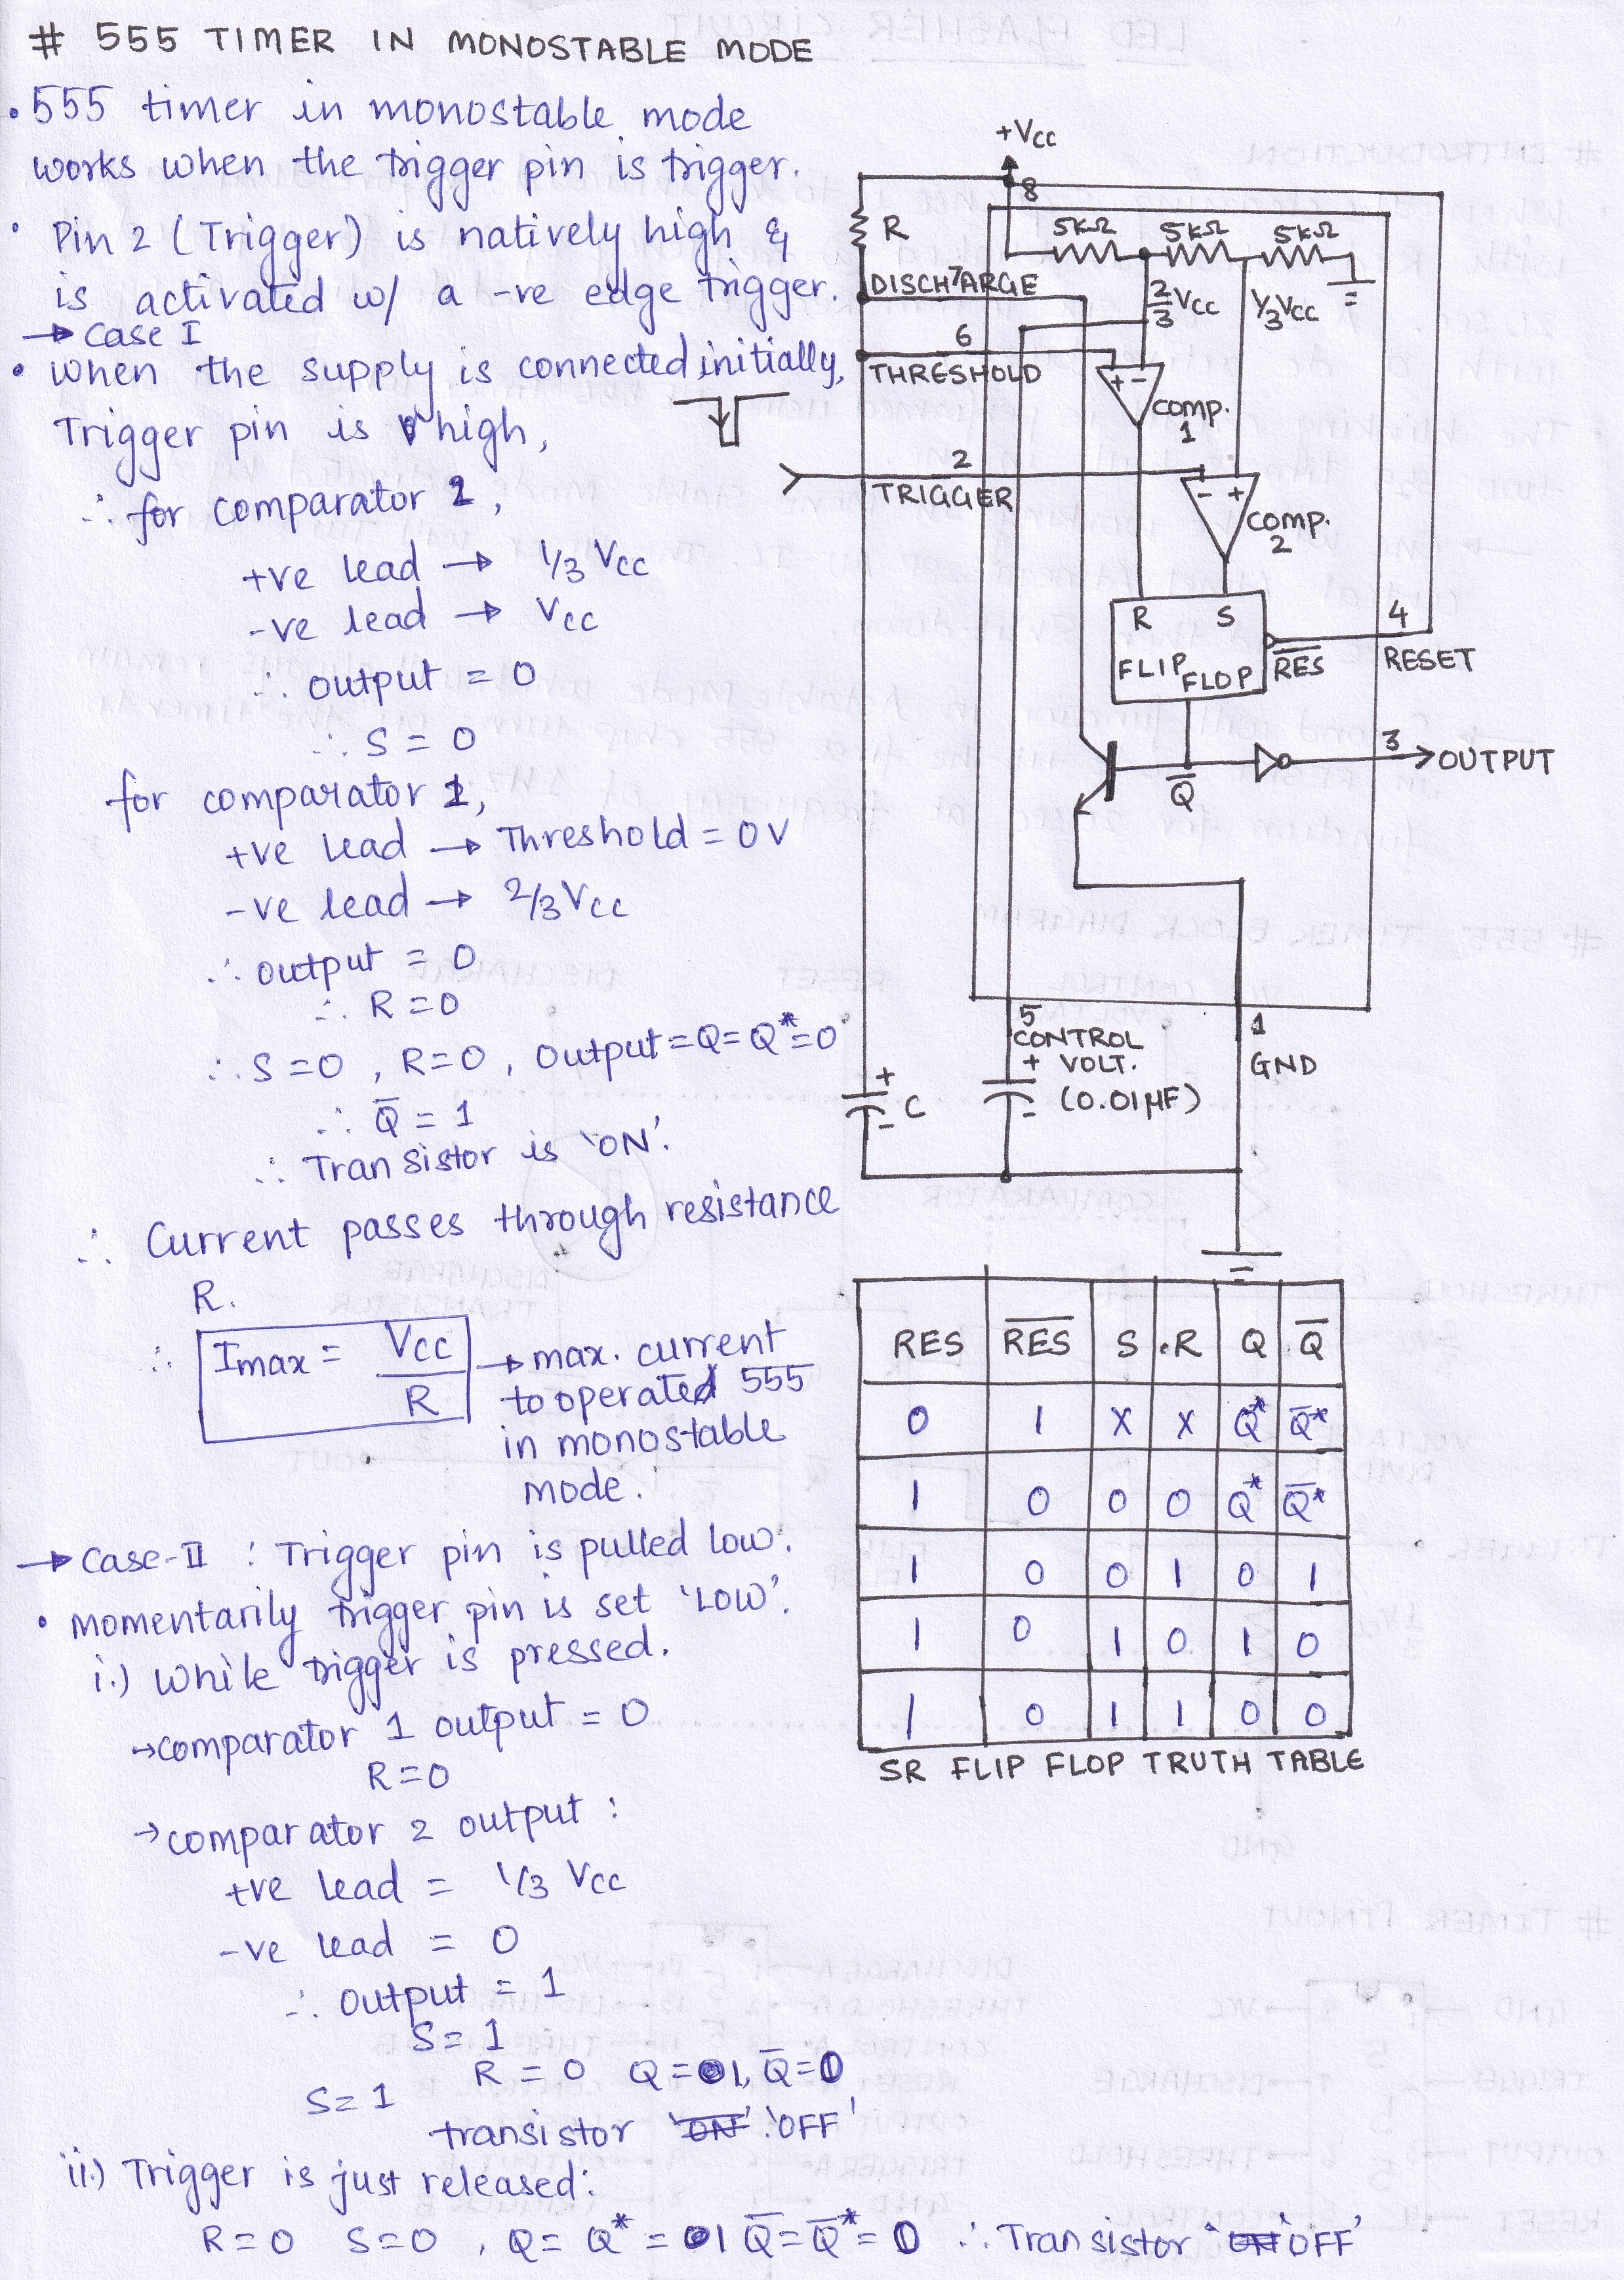 # 555 TIMER IN MONOSTABLE MODE
• 555 timer in monostable mode
works when the trigger pin is trigger.
• Pin 2 (Trigger) is natively high &
is activated w/ a -ve edge trigger.
→ Case I
• when the supply is connected initially,
Trigger pin is high,
∴ for comparator 2,
+ve lead → 1/3 Vcc
-ve lead → Vcc
∴ output = 0
∴ S = 0
for comparator 1,
+ve lead → Threshold = 0V
-ve lead → 2/3 Vcc
∴ output = 0
∴ R = 0
∴ S = 0, R = 0, Output = Q = Q* = 0
∴ Q̅ = 1
∴ Transistor is 'ON'.
∴ Current passes through resistance
R.
∴ Imax = Vcc / R → max. current
to operate 555
in monostable
mode.
→ Case-II : Trigger pin is pulled low.
• momentarily trigger pin is set 'LOW'.
i.) While trigger is pressed.
→ comparator 1 output = 0
R = 0
→ comparator 2 output :
+ve lead = 1/3 Vcc
-ve lead = 0
∴ output = 1
S = 1
R = 0 Q = 1, Q̅ = 0
S = 1
transistor 'OFF'
ii.) Trigger is just released:
R = 0 S = 0, Q = Q* = 1 Q̅ = Q̅* = 0 ∴ Transistor 'OFF'
+Vcc
8
R
5kΩ 5kΩ 5kΩ
7
DISCHARGE
2/3 Vcc 1/3 Vcc
6
THRESHOLD
+ -
comp.
1
2
TRIGGER
- +
comp.
2
R S
FLIP FLOP
RES̅
4
RESET
3
OUTPUT
Q̅
5
CONTROL
VOLT.
(0.01µF)
+
-
1
GND
+
C
-
RES R̅E̅S̅ S R Q Q̅
0 1 X X Q* Q̅*
1 0 0 0 Q* Q̅*
1 0 0 1 0 1
1 0 1 0 1 0
1 0 1 1 0 0
SR FLIP FLOP TRUTH TABLE